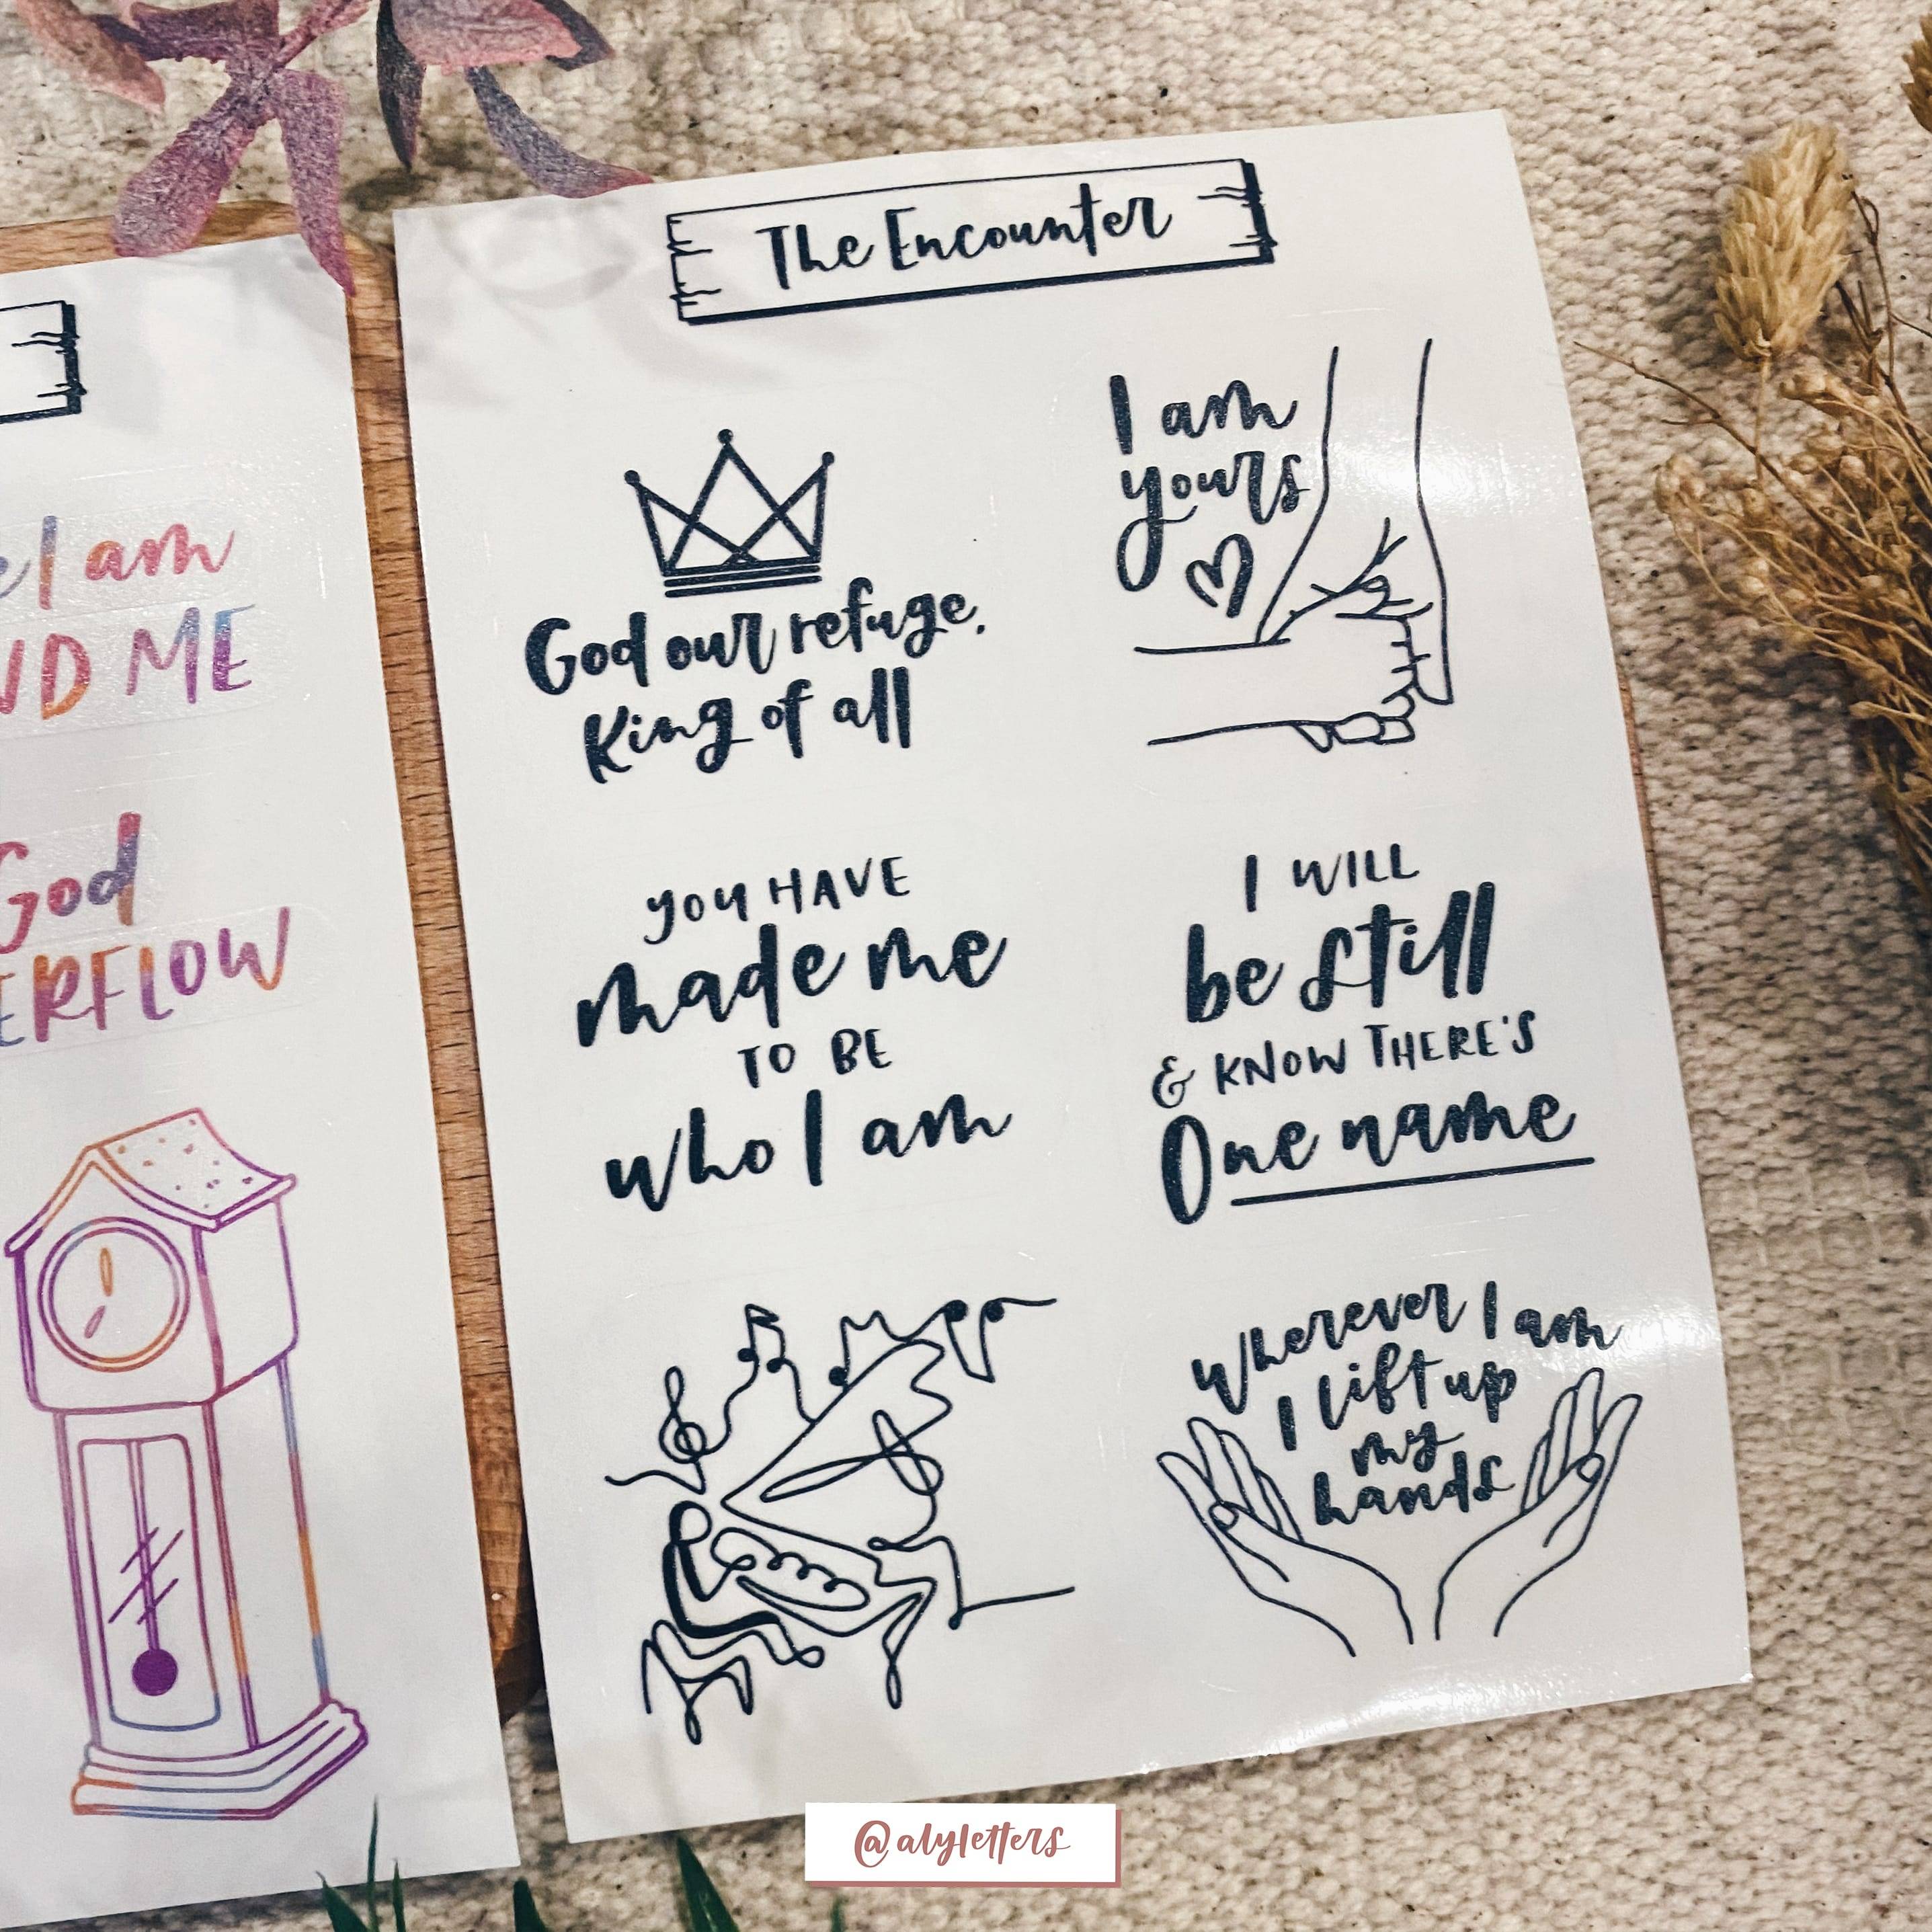 The Encounter
I am
yours
God our refuge,
King of all
you HAVE
made me
TO BE
who I am
I WILL
be still
& KNOW THERE'S
One name
Wherever I am
I lift up
my
hands
I am
ME
God
@alyletters